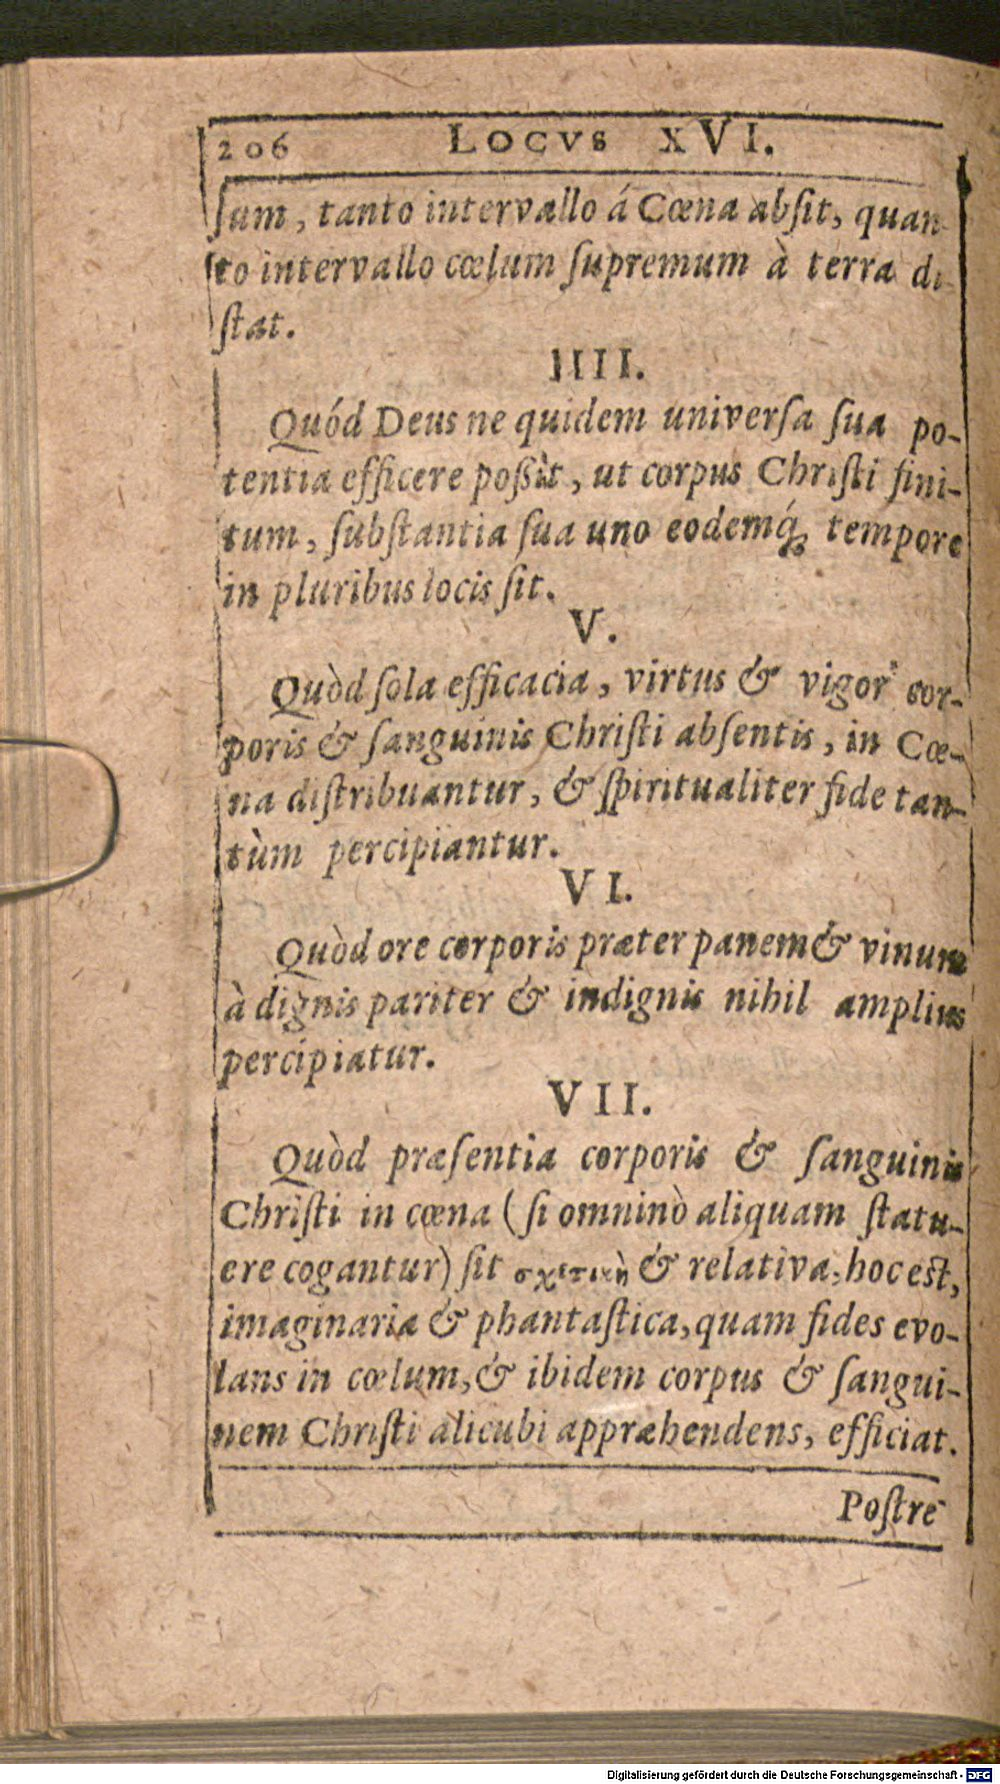 206 LOCVS XVI.
ſum, tanto intervallo á Cœna abſit, quan-
to intervallo cœlum ſupremum à terra di-
ſtat.
IIII.
Quód Deus ne quidem univerſa ſua po-
tentia efficere poſsìt, ut corpus Chriſti fini-
tum, ſubſtantia ſua uno eodemq́; tempore
in pluribus locis ſit.
V.
Quòd ſola efficacia, virtus & vigor cor-
poris & ſanguinis Chriſti abſentis, in Cœ-
na diſtribuantur, & ſpiritualiter fide tan-
tùm percipiantur.
VI.
Quòd ore corporis præter panem & vinum
à dignis pariter & indignis nihil amplius
percipiatur.
VII.
Quòd præſentia corporis & ſanguinis
Chriſti in cœna (ſi omninò aliquam ſtatu-
ere cogantur) ſit σχετικὴ & relativa, hoc eſt,
imaginaria & phantaſtica, quam fides evo-
lans in cœlum, & ibidem corpus & ſangui-
nem Chriſti alicubi appræhendens, efficiat.
Poſtre-
Digitalisierung gefördert durch die Deutsche Forschungsgemeinschaft - DFG